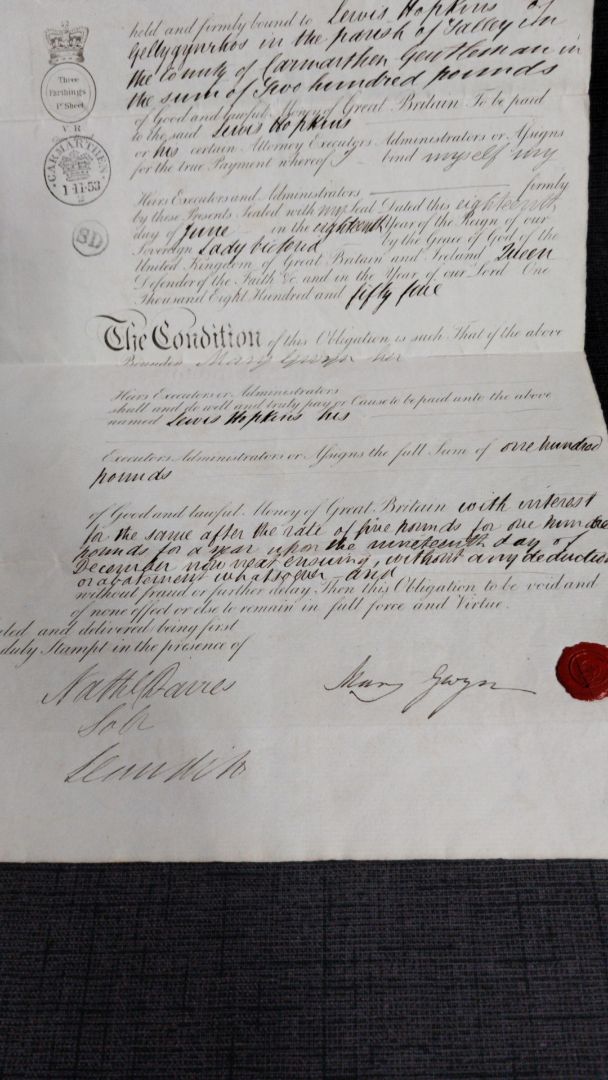 held and firmly bound to Lewis Hopkins of
Gellygynrhos in the parish of Talley in
the County of Carmarthen Gentleman in
the sum of Two hundred pounds
of Good and lawful Money of Great Britain To be paid
to the said Lewis Hopkins
or his certain Attorney Executors Administrators or Assigns
for the true Payment whereof I bind myself my
Heirs Executors and Administrators firmly
by these Presents Sealed with my Seal Dated this eighteenth
day of June in the eighteenth Year of the Reign of our
Sovereign Lady Victoria by the Grace of God of the
United Kingdom of Great Britain and Ireland Queen
Defender of the Faith &c and in the Year of our Lord One
Thousand Eight Hundred and fifty four
Three
Farthings
Pr Sheet
V R
CARMARTHEN
1·11·53
2
SD
The Condition of this Obligation is such That if the above
Bounden Mary Gwyn her
Heirs Executors or Administrators
shall and do well and truly pay or Cause to be paid unto the above
named Lewis Hopkins his
Executors Administrators or Assigns the full Sum of one hundred
pounds
of Good and lawful Money of Great Britain with interest
for the same after the rate of five pounds for one hundred
pounds for a year upon the nineteenth day of
December now next ensuing, without any deduction
or abatement whatsoever and
without fraud or further delay Then this Obligation to be void and
of none effect or else to remain in full force and Virtue.
and delivered being first
duly Stampt in the presence of
Nathl Davies
Mary Gwyn
Solr
Llandilo